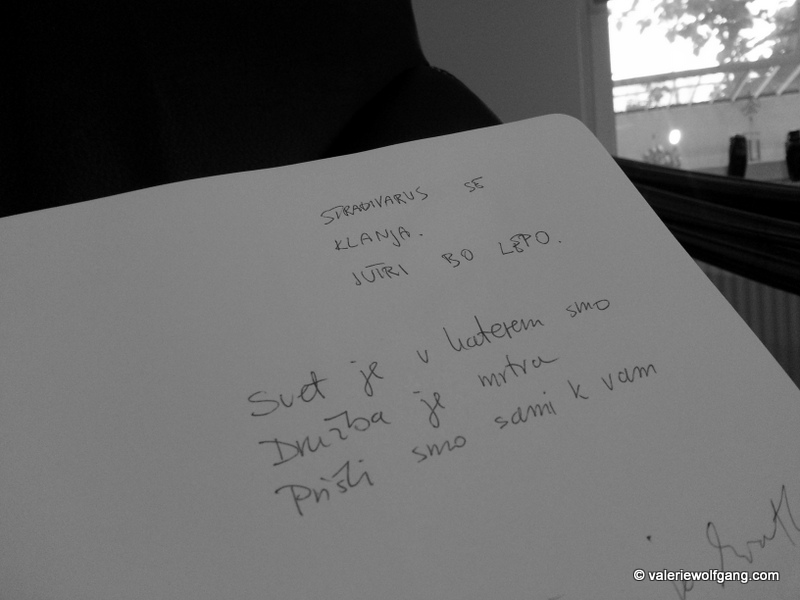 STRADIVARUS SE
KLANJA.
JUTRI BO LEPO.
Svet je v katerem smo
Družba je mrtva
Prišli smo sami k vam
© valeriewolfgang.com